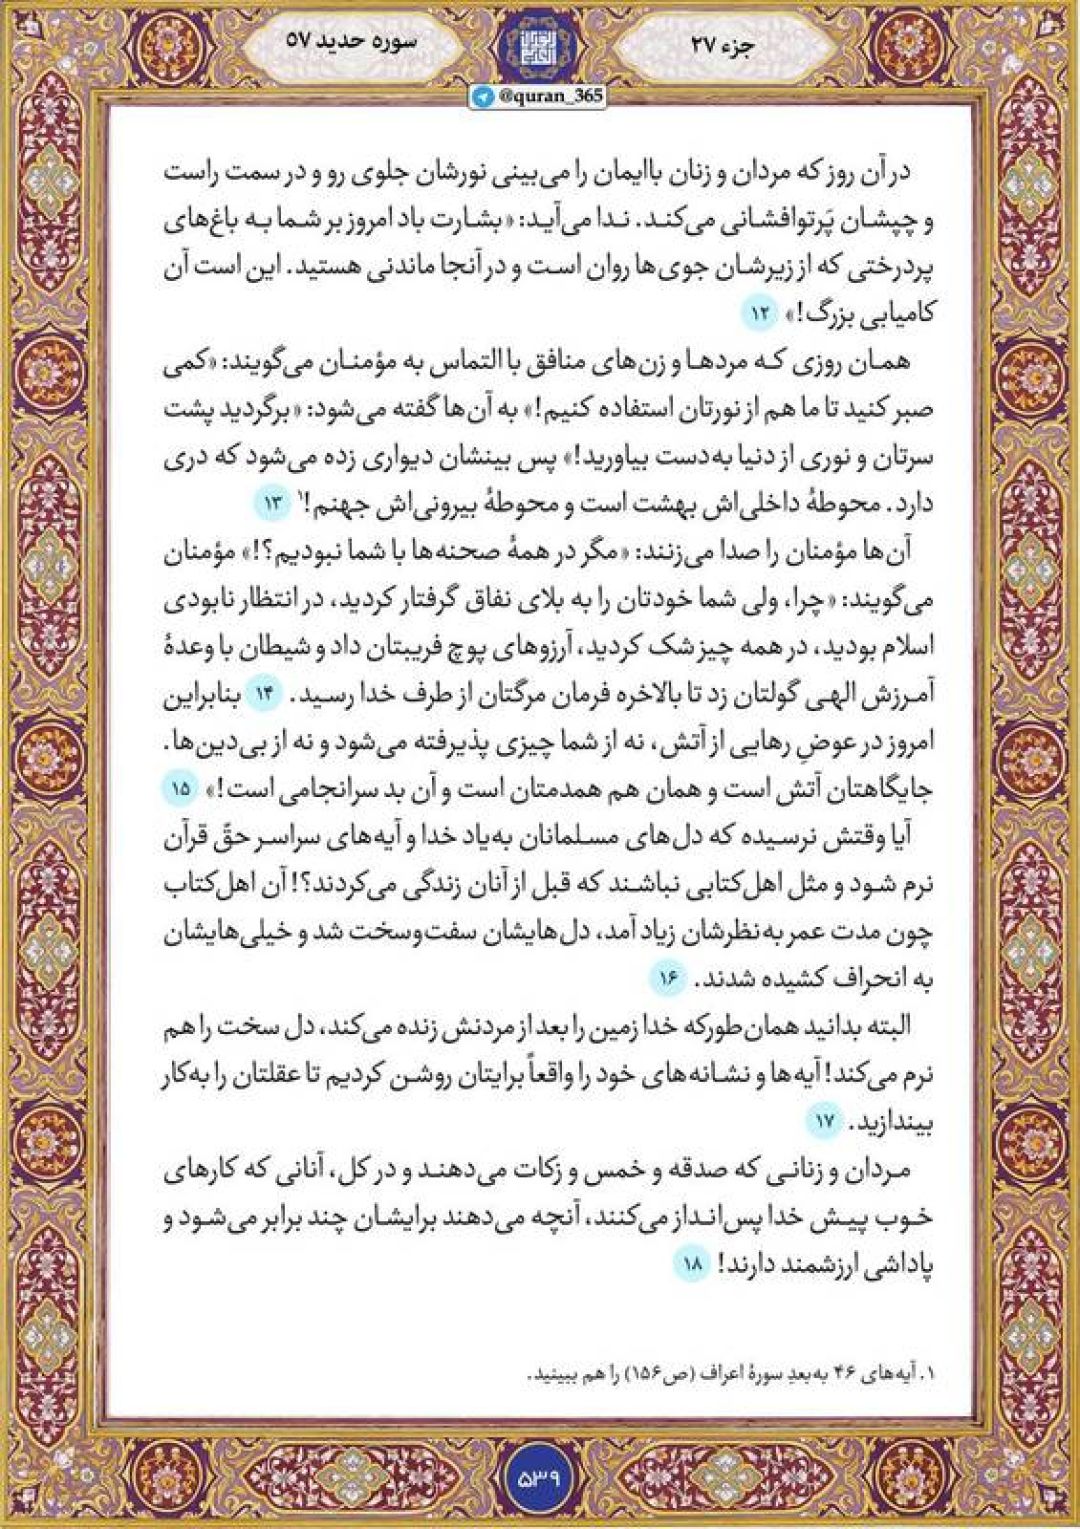 جزء ۲۷
سوره حدید ۵۷
@quran_365
در آن روز که مردان و زنان باایمان را می‌بینی نورشان جلوی رو و در سمت راست
و چپشان پَرتوافشانی می‌کند. ندا می‌آید: «بشارت باد امروز بر شما به باغ‌های
پردرختی که از زیرشان جوی‌ها روان است و در آنجا ماندنی هستید. این است آن
کامیابی بزرگ!» ۱۲
همان روزی که مردها و زن‌های منافق با التماس به مؤمنان می‌گویند: «کمی
صبر کنید تا ما هم از نورتان استفاده کنیم!» به آن‌ها گفته می‌شود: «برگردید پشت
سرتان و نوری از دنیا به‌دست بیاورید!» پس بینشان دیواری زده می‌شود که دری
دارد. محوطهٔ داخلی‌اش بهشت است و محوطهٔ بیرونی‌اش جهنم!۱ ۱۳
آن‌ها مؤمنان را صدا می‌زنند: «مگر در همهٔ صحنه‌ها با شما نبودیم؟!» مؤمنان
می‌گویند: «چرا، ولی شما خودتان را به بلای نفاق گرفتار کردید، در انتظار نابودی
اسلام بودید، در همه چیز شک کردید، آرزوهای پوچ فریبتان داد و شیطان با وعدهٔ
آمرزش الهی گولتان زد تا بالاخره فرمان مرگتان از طرف خدا رسید. ۱۴ بنابراین
امروز در عوضِ رهایی از آتش، نه از شما چیزی پذیرفته می‌شود و نه از بی‌دین‌ها.
جایگاهتان آتش است و همان هم همدمتان است و آن بد سرانجامی است!» ۱۵
آیا وقتش نرسیده که دل‌های مسلمانان به‌یاد خدا و آیه‌های سراسر حقّ قرآن
نرم شود و مثل اهل‌کتابی نباشند که قبل از آنان زندگی می‌کردند؟! آن اهل‌کتاب
چون مدت عمر به‌نظرشان زیاد آمد، دل‌هایشان سفت‌وسخت شد و خیلی‌هایشان
به انحراف کشیده شدند. ۱۶
البته بدانید همان‌طورکه خدا زمین را بعد از مردنش زنده می‌کند، دل سخت را هم
نرم می‌کند! آیه‌ها و نشانه‌های خود را واقعاً برایتان روشن کردیم تا عقلتان را به‌کار
بیندازید. ۱۷
مردان و زنانی که صدقه و خمس و زکات می‌دهند و در کل، آنانی که کارهای
خوب پیش خدا پس‌انداز می‌کنند، آنچه می‌دهند برایشان چند برابر می‌شود و
پاداشی ارزشمند دارند! ۱۸
۱. آیه‌های ۴۶ به‌بعدِ سورهٔ اعراف (ص۱۵۶) را هم ببینید.
۵۳۹